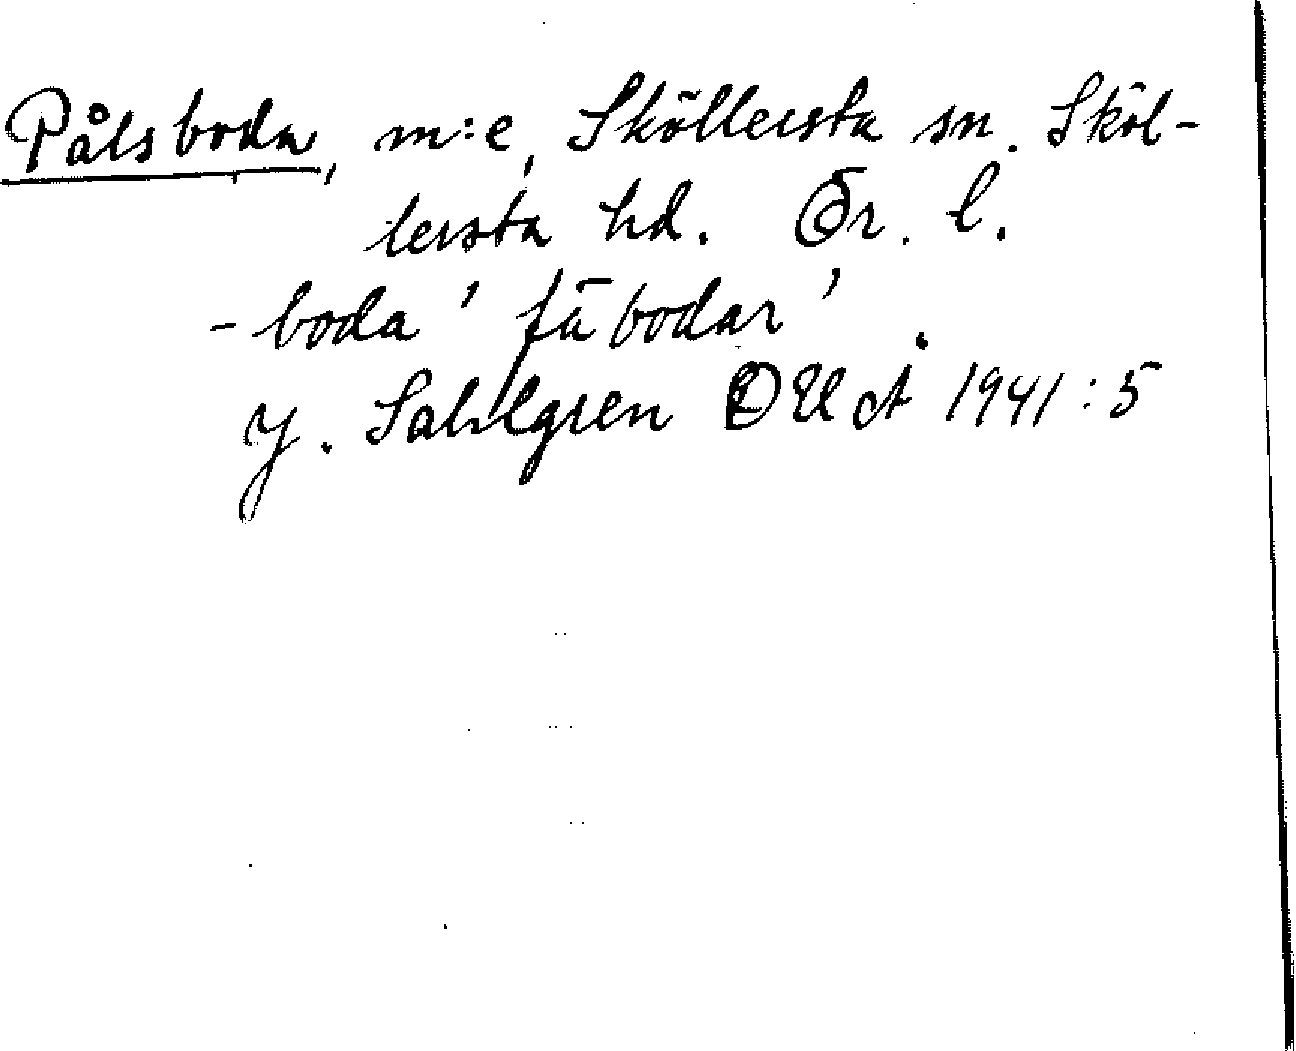 Pålsboda, m:e, Sköllersta sn. Sköl-
lersta hd. Ör. l.
-boda 'fäbodar'.
J. Sahlgren OUÅ 1941:5